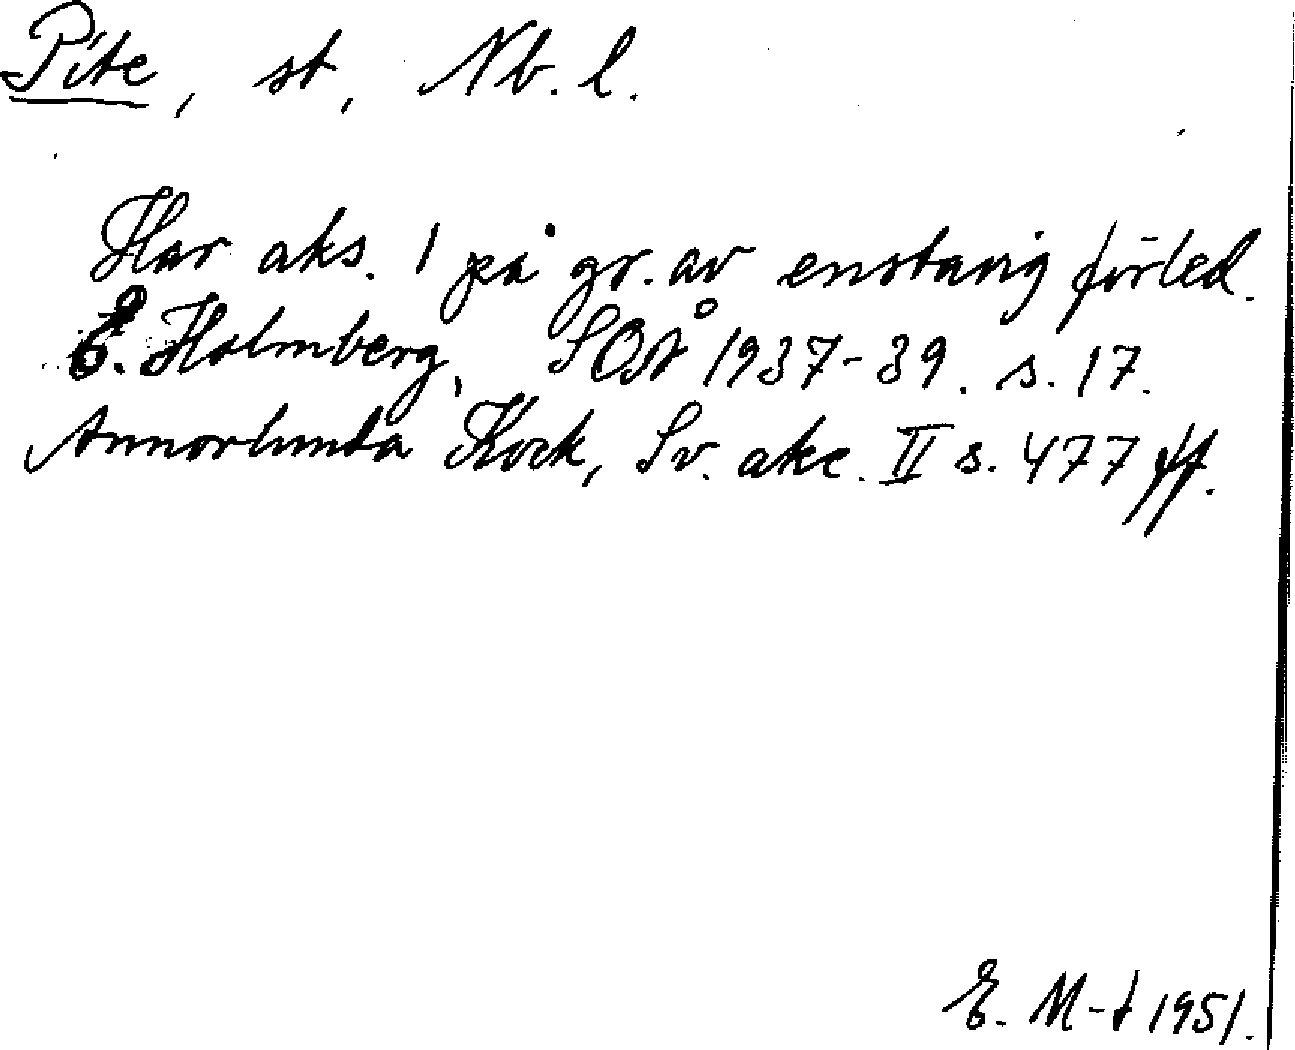 Pite, st, Nb. l.
Har aks. 1 på gr. av enstavig förled.
B. Holmberg, SOSÅ 1937-39. s. 17.
Annorlunda Kock, Sv. akc. II s. 477 ff.
E. M-d 1951.